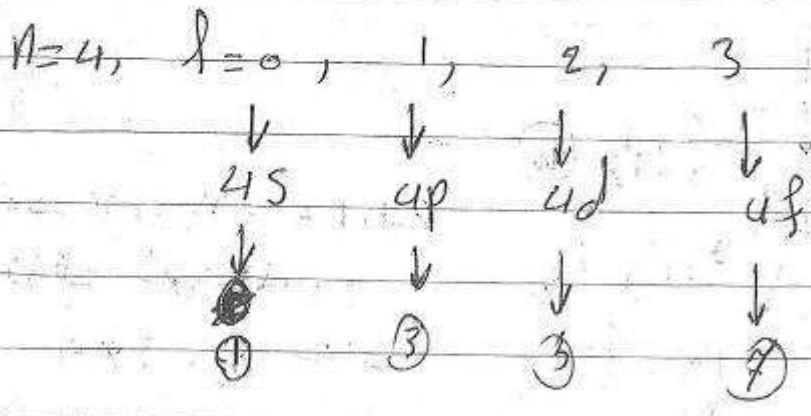 n=4, l=0, 1, 2, 3
↓ ↓ ↓ ↓
4s 4p 4d 4f
↓ ↓ ↓ ↓
1 3 3 7